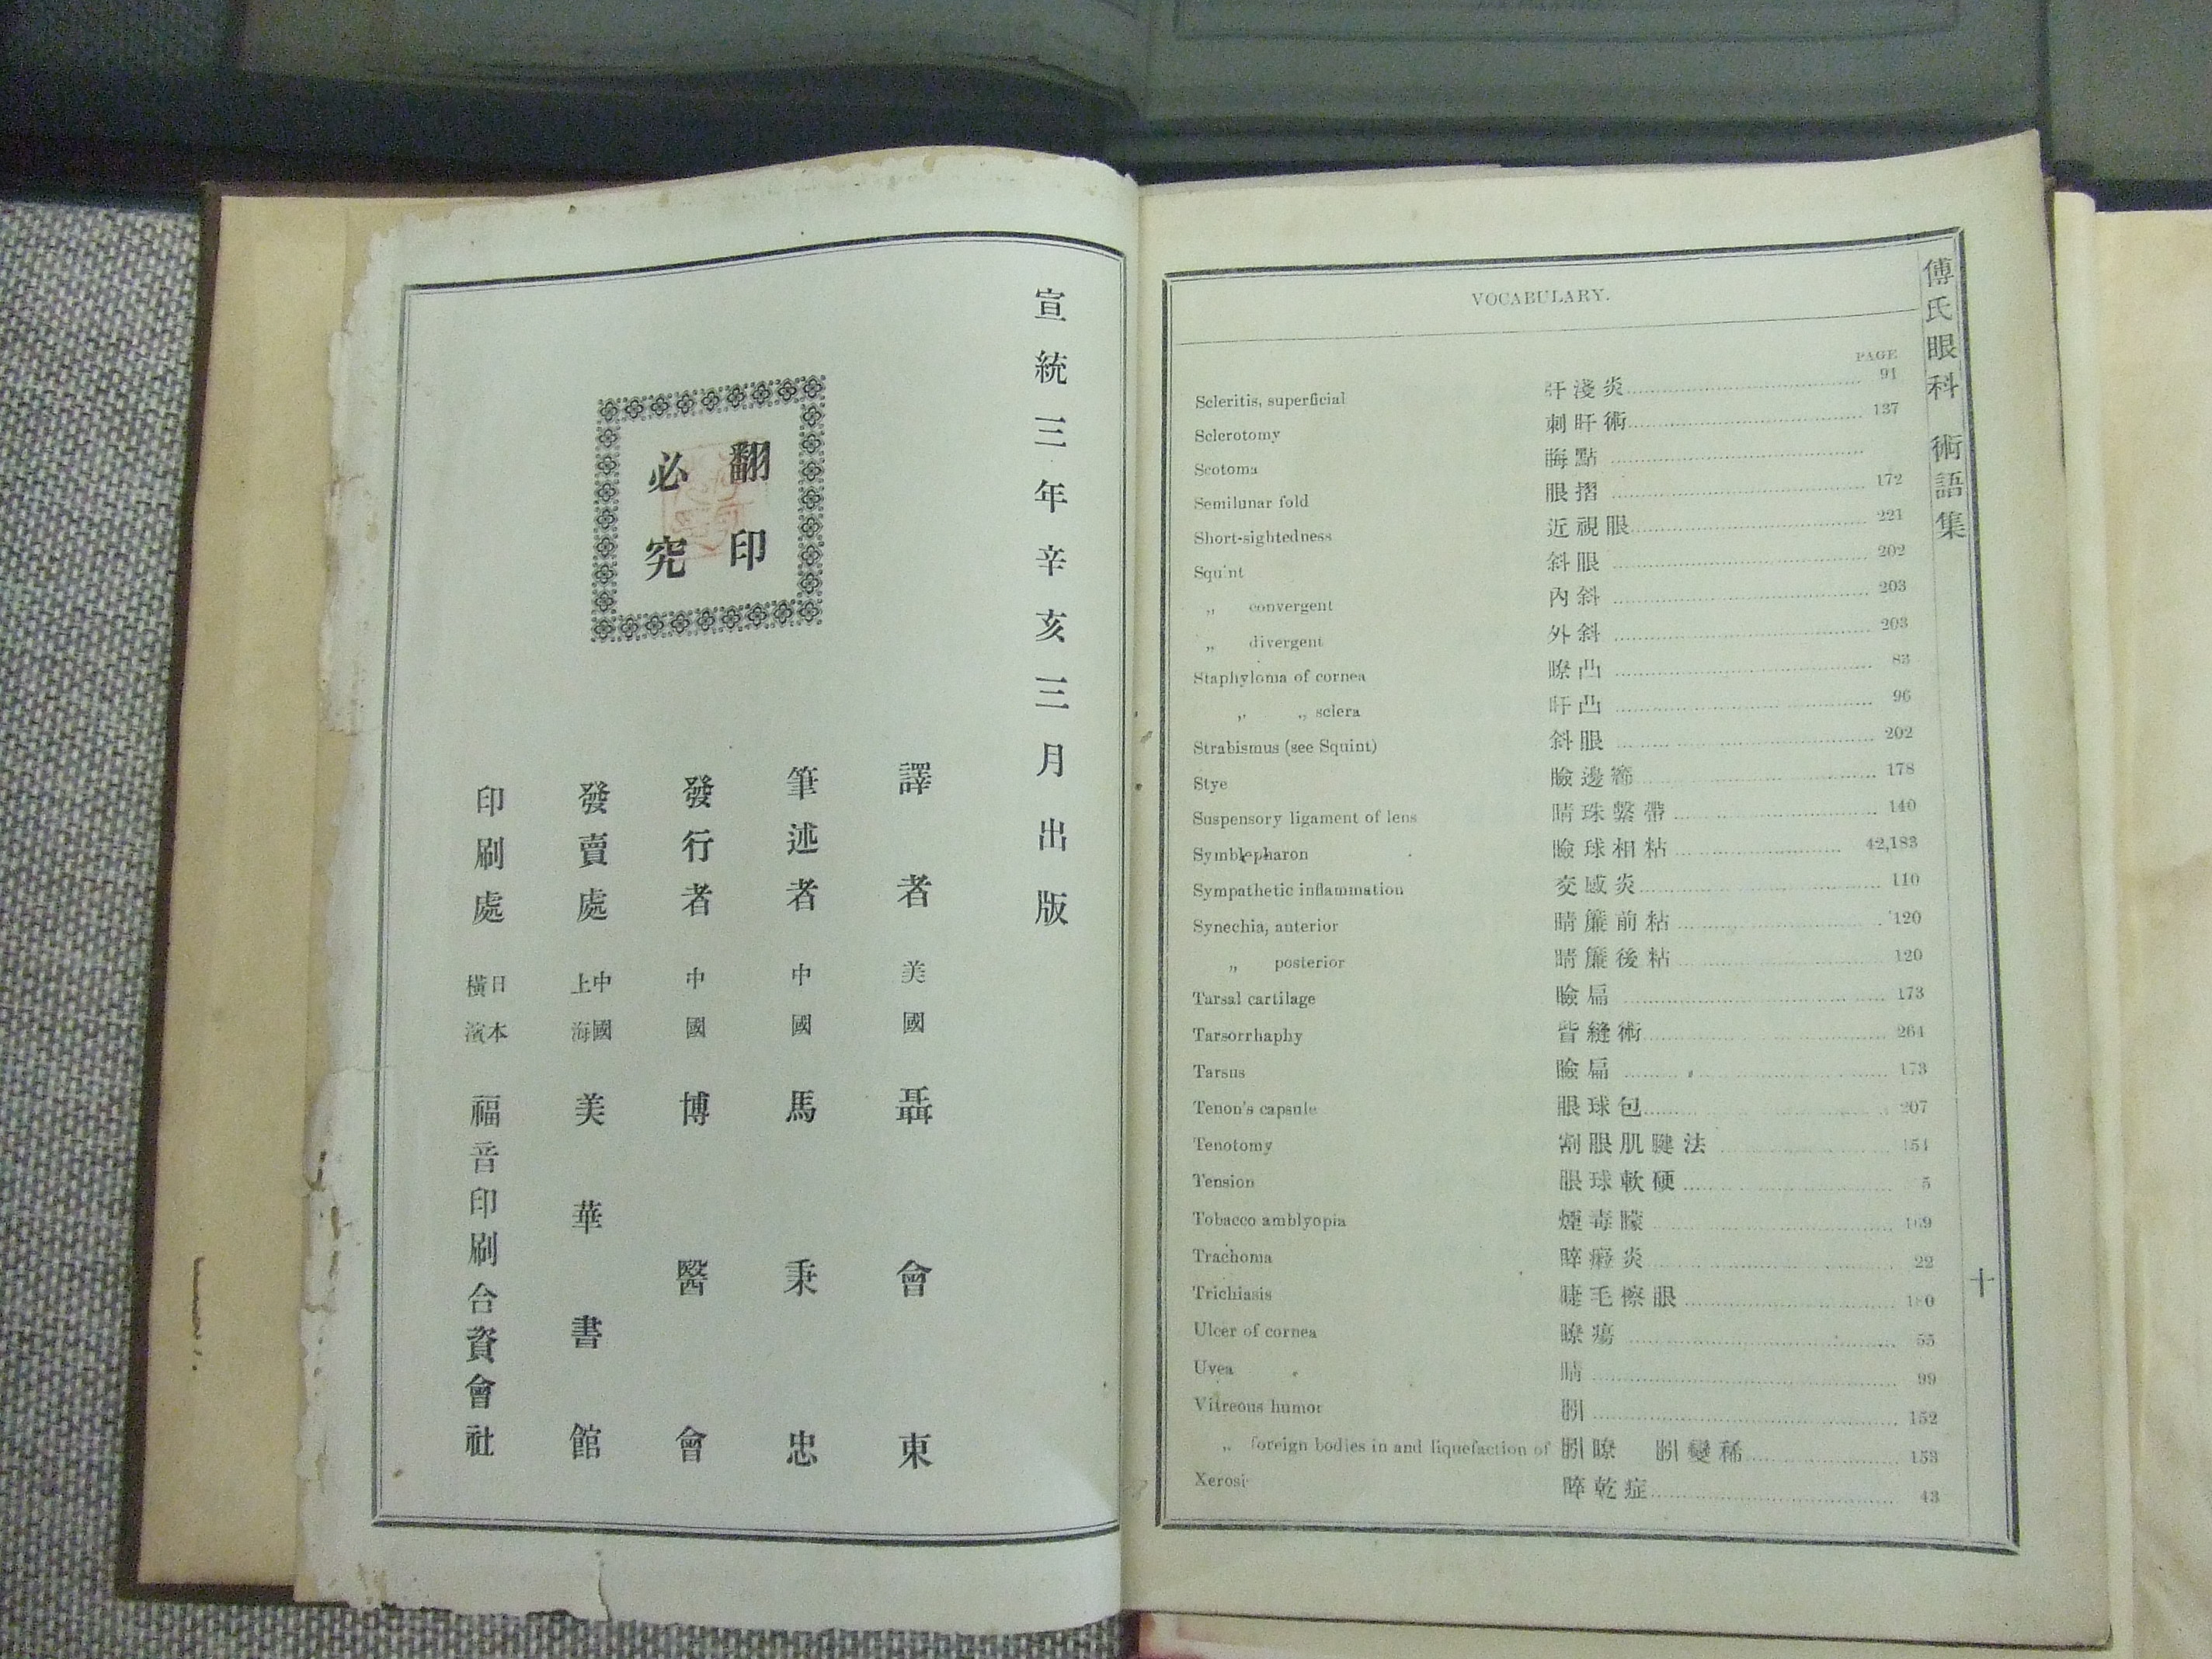 傅氏眼科 術語集
十
VOCABULARY.
PAGE
Scleritis, superficial 盰淺炎 91
Sclerotomy 刺盰術 137
Scotoma 晦點
Semilunar fold 眼摺 172
Short-sightedness 近視眼 221
Squint 斜眼 202
„ convergent 內斜 203
„ divergent 外斜 203
Staphyloma of cornea 暸凸 83
„ „ sclera 盰凸 96
Strabismus (see Squint) 斜眼 202
Stye 瞼邊癤 178
Suspensory ligament of lens 睛珠繫帶 140
Symblepharon 瞼球相粘 42,183
Sympathetic inflammation 交感炎 110
Synechia, anterior 睛簾前粘 120
„ posterior 睛簾後粘 120
Tarsal cartilage 瞼扁 173
Tarsorrhaphy 眥縫術 264
Tarsus 瞼扁 173
Tenon's capsule 眼球包 207
Tenotomy 割眼肌腱法
Tension 眼球軟硬 5
Tobacco amblyopia 煙毒矇 169
Trachoma 炎 22
Trichiasis 睫毛擦眼 180
Ulcer of cornea 暸瘍 55
Uvea 睛 99
Vitreous humor 152
„ foreign bodies in and liquefaction of 變稀 153
Xerosis 乾症 43
宣統三年辛亥三月出版
翻印
必究
譯者 美國 聶會東
筆述者 中國 馬秉忠
發行者 中國 博醫會
發賣處 中國上海 美華書館
印刷處 日本橫濱 福音印刷合資會社